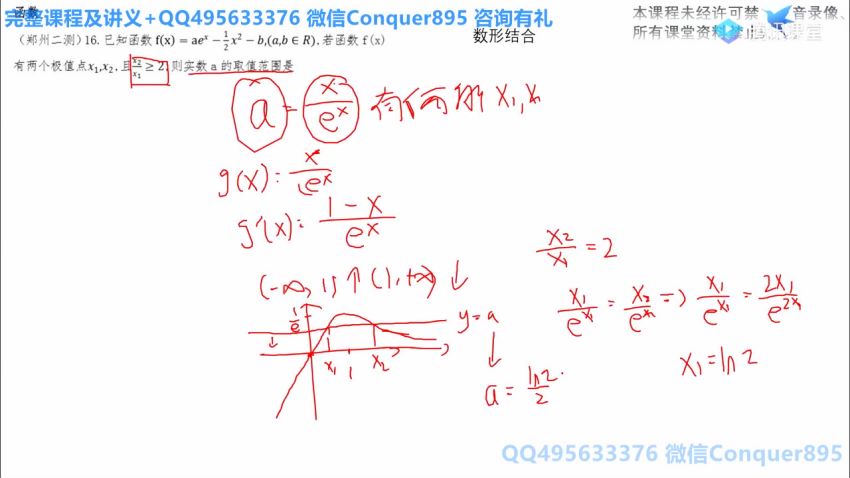 函数
完整课程及讲义+QQ495633376 微信Conquer895 咨询有礼
本课程未经许可禁 音录像、
所有课堂资料 腾讯课堂
（郑州二测）16. 已知函数 f(x) = ae^x − 1/2 x^2 − b,(a,b ∈ R), 若函数 f(x)
数形结合
有两个极值点x₁,x₂, 且 x₂/x₁ ≥ 2, 则实数 a 的取值范围是
a = x/e^x 有两 x₁, x₂
g(x): x/e^x
g'(x): 1-x/e^x
x₂/x₁ = 2
(-∞, 1) ↑ (1, +∞) ↓
x₁/e^x₁ = x₂/e^x₂ => x₁/e^x₁ = 2x₁/e^2x₁
1/e
y=a
x₁ 1 x₂
x₁ = ln2
a = ln2/2
QQ495633376 微信Conquer895